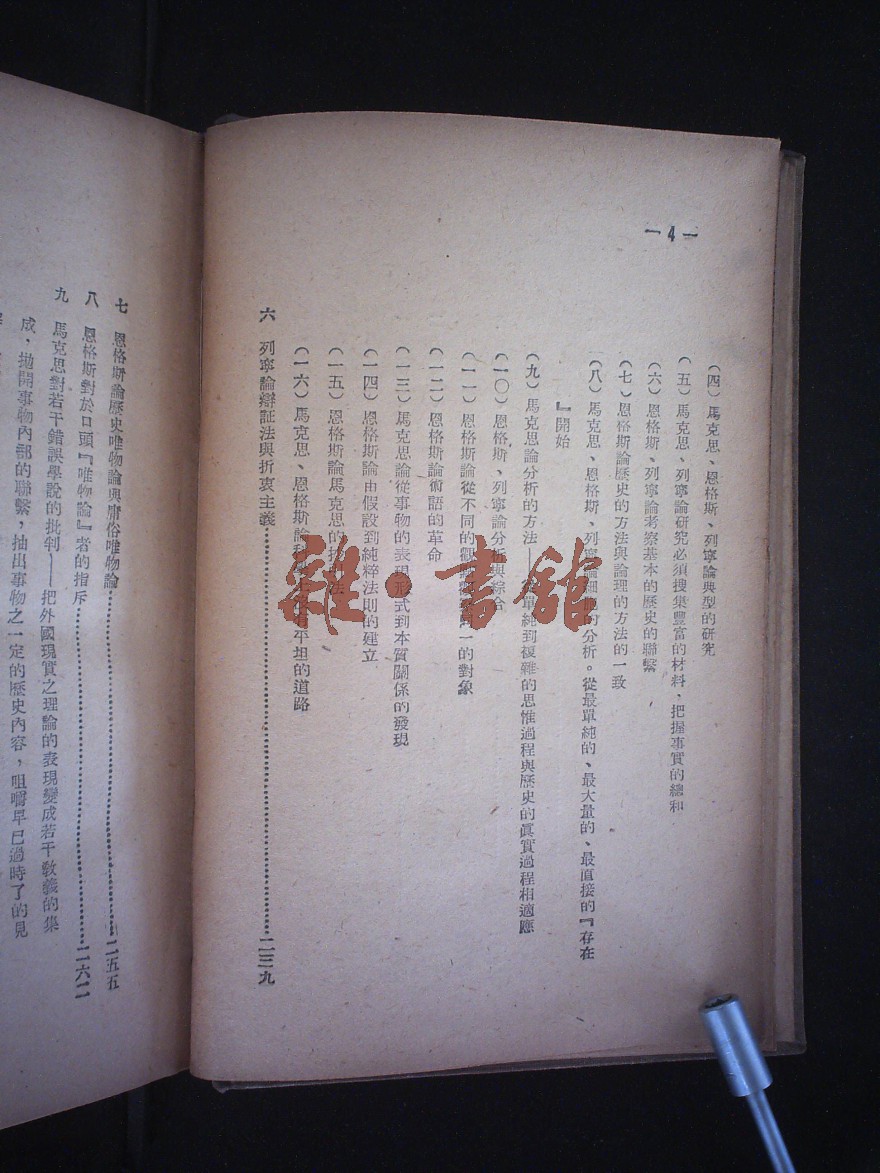 一4一
（四）馬克思、恩格斯、列寧論典型的研究
（五）馬克思、列寧論研究必須搜集豐富的材料，把握事實的總和
（六）恩格斯、列寧論考察基本的歷史的聯繫
（七）恩格斯論歷史的方法與論理的方法的一致
（八）馬克思、恩格斯、列寧論細胞的分析。從最單純的、最大量的、最直接的『存在
』開始
（九）馬克思論分析的方法——從單純到複雜的思惟過程與歷史的眞實過程相適應
（一〇）恩格斯、列寧論分析與綜合
（一一）恩格斯論從不同的觀點 同一的對象
（一二）恩格斯論術語的革命
（一三）馬克思論從事物的表現形式到本質關係的發現
（一四）恩格斯論由假設到純粹法則的建立
（一五）恩格斯論馬克思的 法
（一六）馬克思、恩格斯論科學 平坦的道路
六 列寧論辯証法與折衷主義……二三九
七 恩格斯論歷史唯物論與庸俗唯物論……二五五
八 恩格斯對於口頭『唯物論』者的指斥……二六二
九 馬克思對若干錯誤學說的批判——把外國現實之理論的表現變成若干敎義的集
成，拋開事物內部的聯繫，抽出事物之一定的歷史內容，咀嚼早已過時了的見
雜·書舘